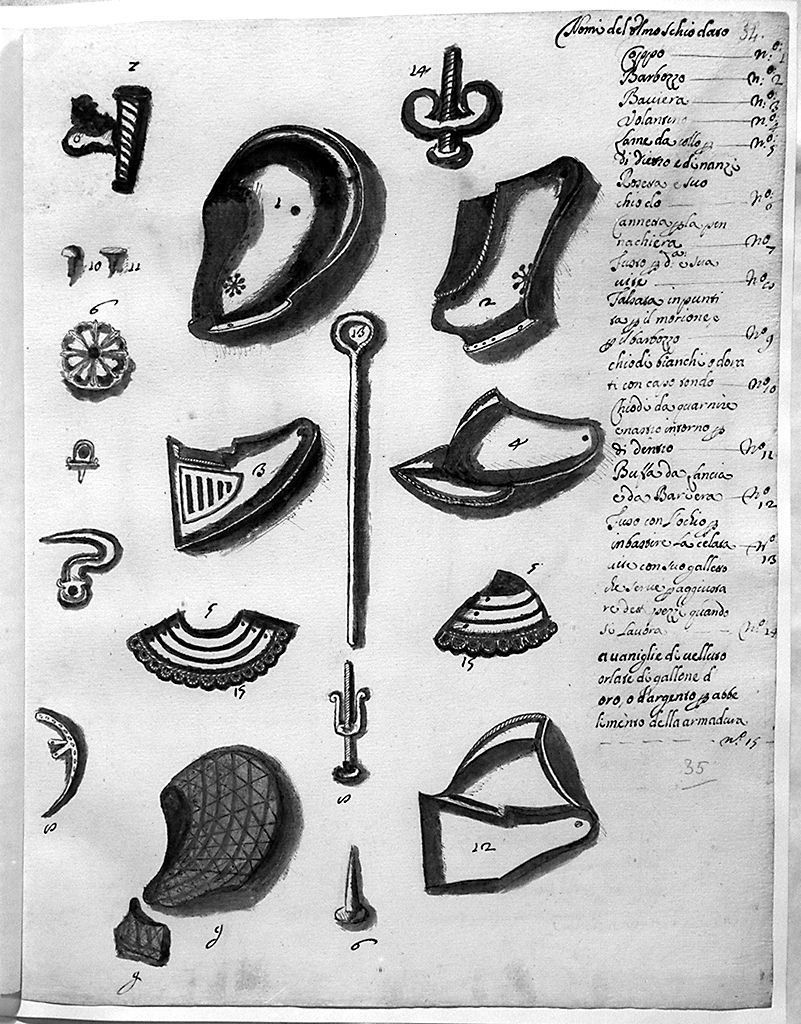 Nomi del Elmo schiodato 34.
Coppo n.º 1
Barbozzo n.º 2
Baviera n.º 3
Volantino n.º 4
Lame da collo p n.º 5
di dietro e dinanzi
Rosetta e suo
chiodo n.º 6
Cannetta p la pen
nachiera n.º 7
Fusto p di e sua
vite n.º 8
Falsata inpunti
ta p il morione, e
p il barbozzo n.º 9
chiodi bianchi o dora
ti con capo tondo n.º 10
Chiodi da guarnire
e nastro intorno p
di dentro n.º 11
Buffa da Lancia
e da Barriera n.º 12
Fuso con l'ochio p
inbastire la celata n.º 13
vite con suo galletto
che serve p aggiusta
re detti pezzi quando
si lavora n.º 14
avaniglie di velluto
orlate di gallone d
oro, o d'argento p abbe
limento della armadura
n.º 15
35
7
14
1
2
10
11
6
13
3
4
5
15
5
15
8
8
12
9
9
6